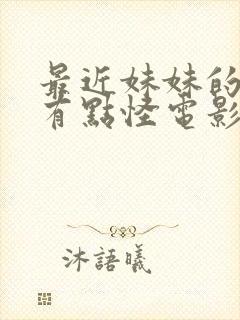 最近妹妹的
有點怪電影
沐語曦